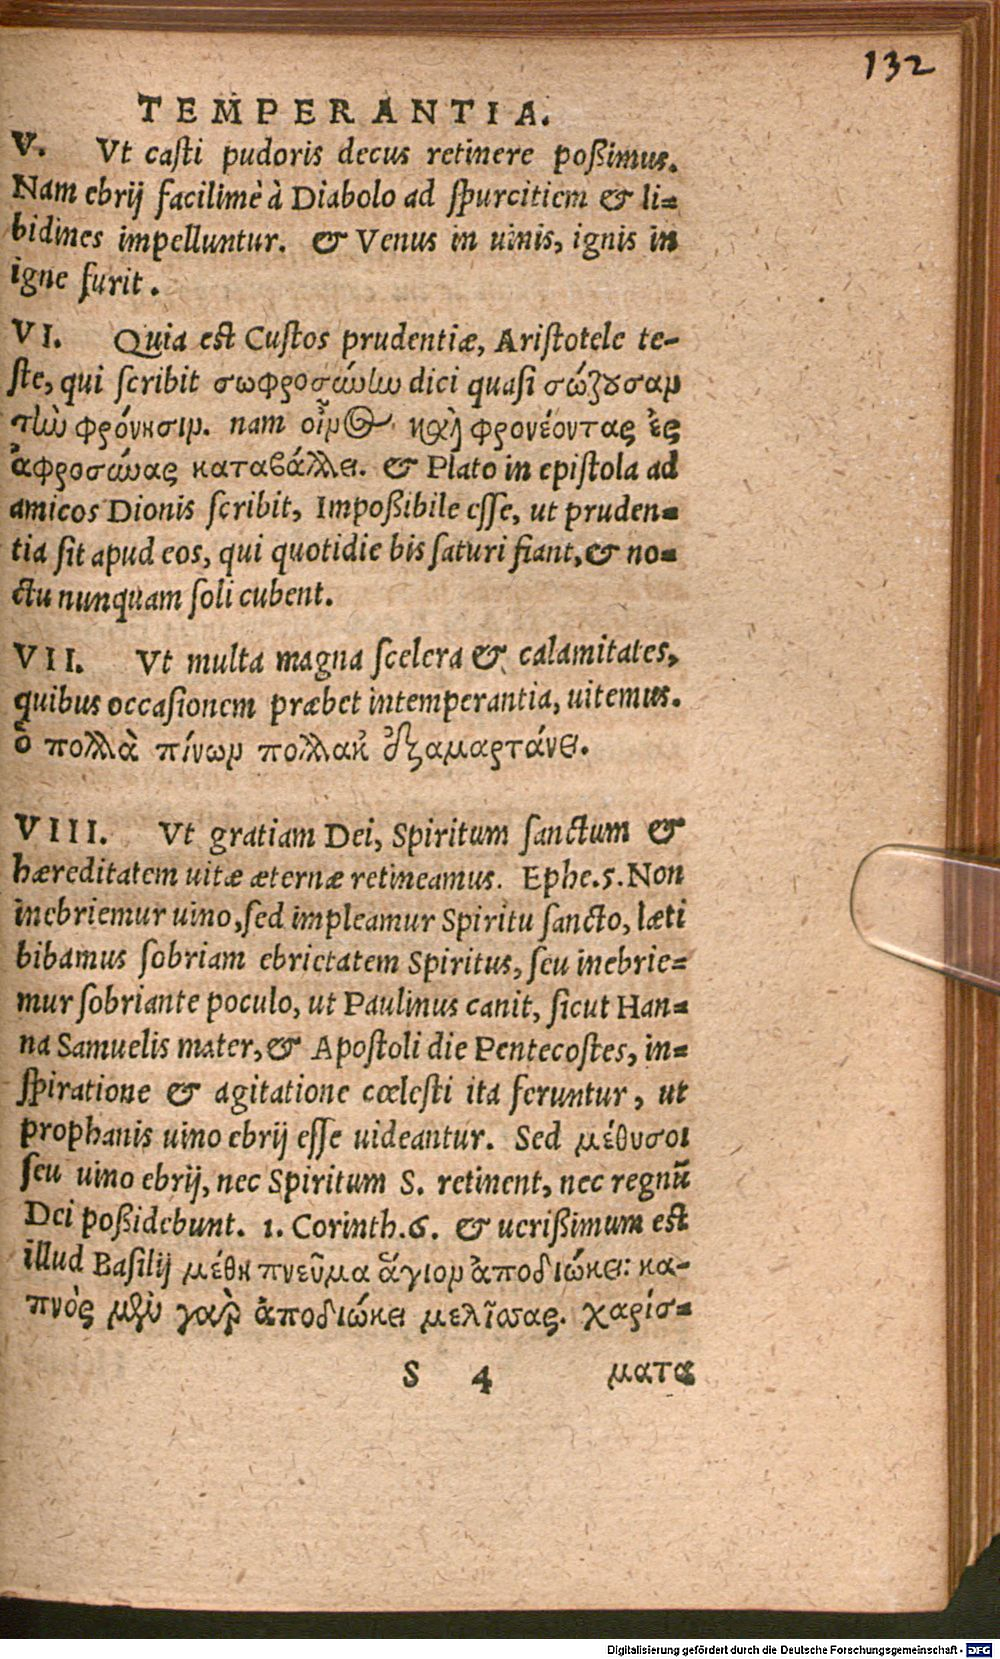 132
TEMPERANTIA.
V. Vt casti pudoris decus retinere poßimus.
Nam ebrij facilimè à Diabolo ad spurcitiem & li-
bidines impelluntur. & Venus in uinis, ignis in
igne furit.
VI. Quia est Custos prudentiæ, Aristotele te-
ste, qui scribit σωφροσύνην dici quasi σώζουσαν
τὴν φρόνησιν. nam οἶνος καὶ φρονέοντας ἐς
ἀφροσύνας καταβάλλει. & Plato in epistola ad
amicos Dionis scribit, Impoßibile esse, ut pruden-
tia sit apud eos, qui quotidie bis saturi fiant, & no-
ctu nunquam soli cubent.
VII. Vt multa magna scelera & calamitates,
quibus occasionem præbet intemperantia, uitemus.
ὁ πολλὰ πίνων πολλακ ἐξαμαρτάνει.
VIII. Vt gratiam Dei, Spiritum sanctum &
hæreditatem uitæ æternæ retineamus. Ephe. 5. Non
inebriemur uino, sed impleamur Spiritu sancto, læti
bibamus sobriam ebrietatem Spiritus, seu inebrie-
mur sobriante poculo, ut Paulinus canit, sicut Han-
na Samuelis mater, & Apostoli die Pentecostes, in-
spiratione & agitatione cœlesti ita feruntur, ut
prophanis uino ebrij esse uideantur. Sed μέθυσοι
seu uino ebrij, nec Spiritum S. retinent, nec regnū
Dei poßidebunt. 1. Corinth. 6. & uerißimum est
illud Basilij μέθη πνεῦμα ἅγιον ἀποδιώκει: κα-
πνὸς μὲν γὰρ ἀποδιώκει μελίσσας. χαρίσ-
S 4 ματα
Digitalisierung gefördert durch die Deutsche Forschungsgemeinschaft - DFG